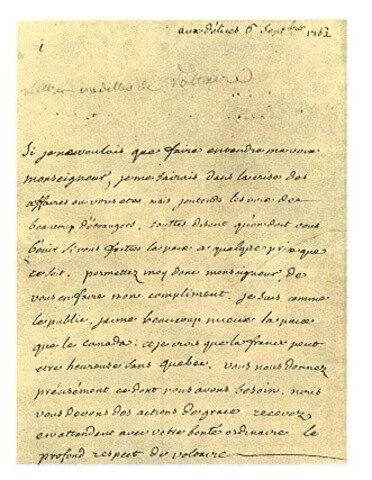 aux délices 6 Septbre 1762
1
de Voltaire
Si je ne voulois que faire entendre ma voix
monseigneur, je me tairais dans la crise des
affaires ou vous etes. mais j'entends les voix de
beaucoup d'étrangers, touttes disent qu'on doit vous
benir si vous faittes la paix a quelque prix que
ce soit. permettez moy donc monseigneur de
vous en faire mon compliment. je suis comme
le public, j'aime beaucoup mieux la paix
que le canada: et je crois que la france peut
etre heureuse sans Quebec. vous nous donnez
précisément ce dont nous avons besoin. nous
vous devons des actions de grace. recevez
en attendant avec votre bonté ordinaire le
profond respect de voltaire